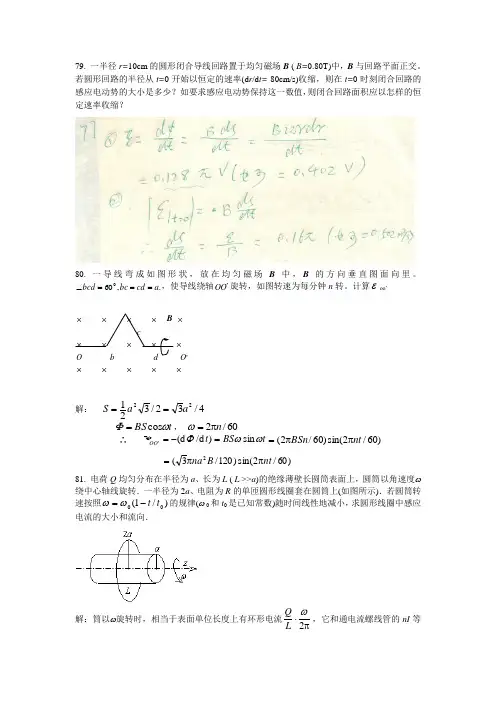 79. 一半径 r=10cm 的圆形闭合导线回路置于均匀磁场 B ( B=0.80T)中,B 与回路平面正交。
若圆形回路的半径从 t=0 开始以恒定的速率(dr/dt= 80cm/s)收缩，则在 t=0 时刻闭合回路的
感应电动势的大小是多少？如要求感应电动势保持这一数值，则闭合回路面积应以怎样的恒
定速率收缩？
dt
= 0.128 π V
= 0.402 V)
80. 一导线弯成如图形状，放在均匀磁场 B 中，B 的方向垂直图面向里。
∠bcd = 60°, bc = cd = a. ，使导线绕轴OO'旋转，如图转速为每分钟 n 转。计算ε OO'
× × × × B ×
c
× × × × ×
O b d O'
× × × × ×
解： S = 1/2 a² √3/2 = √3 a²/4
Φ = BS cosωt ， ω = 2πn/60
∴ ε OO' = −(dΦ/dt) = BSω sinωt = (2πBSn/60)sin(2πnt/60)
= (√3 πna²B/120)sin(2πnt/60)
81. 电荷 Q 均匀分布在半径为 a、长为 L ( L >>a)的绝缘薄壁长圆筒表面上，圆筒以角速度ω
绕中心轴线旋转．一半径为 2a、电阻为 R 的单匝圆形线圈套在圆筒上(如图所示)．若圆筒转
速按照ω = ω₀(1 − t/t₀)的规律(ω₀ 和 t₀ 是已知常数)随时间线性地减小，求圆形线圈中感应
电流的大小和流向．
2a
a
z
L
ω
解：筒以ω旋转时，相当于表面单位长度上有环形电流 Q/L · ω/2π ，它和通电流螺线管的 nI 等